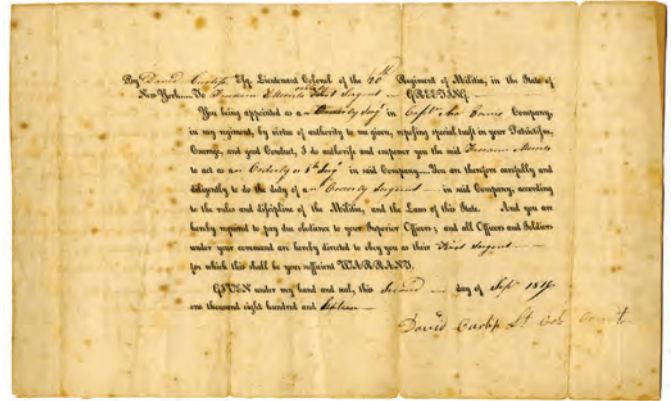 By David Curtiss Esq. Lieutenant Colonel of the th Regiment of Militia, in the State of
New-York To Sergent GREETING
You being appointed as a Orderly Sergt in Captn Company,
in my regiment, by virtue of authority to me given, reposing special trust in your Patriotism,
Courage, and good Conduct, I do authorise and empower you the said
to act as an Orderly or 1st Sergt in said Company You are therefore carefully and
diligently to do the duty of an Orderly Sergent in said Company, according
to the rules and discipline of the Militia, and the Laws of this State. And you are
hereby required to pay due obedience to your Superior Officers; and all Officers and Soldiers
under your command are hereby directed to obey you as their First Sergent
for which this shall be your sufficient WARRANT.
GIVEN under my hand and seal, this Second day of Sept
one thousand eight hundred and Sixteen
David Curtiss Lt Col